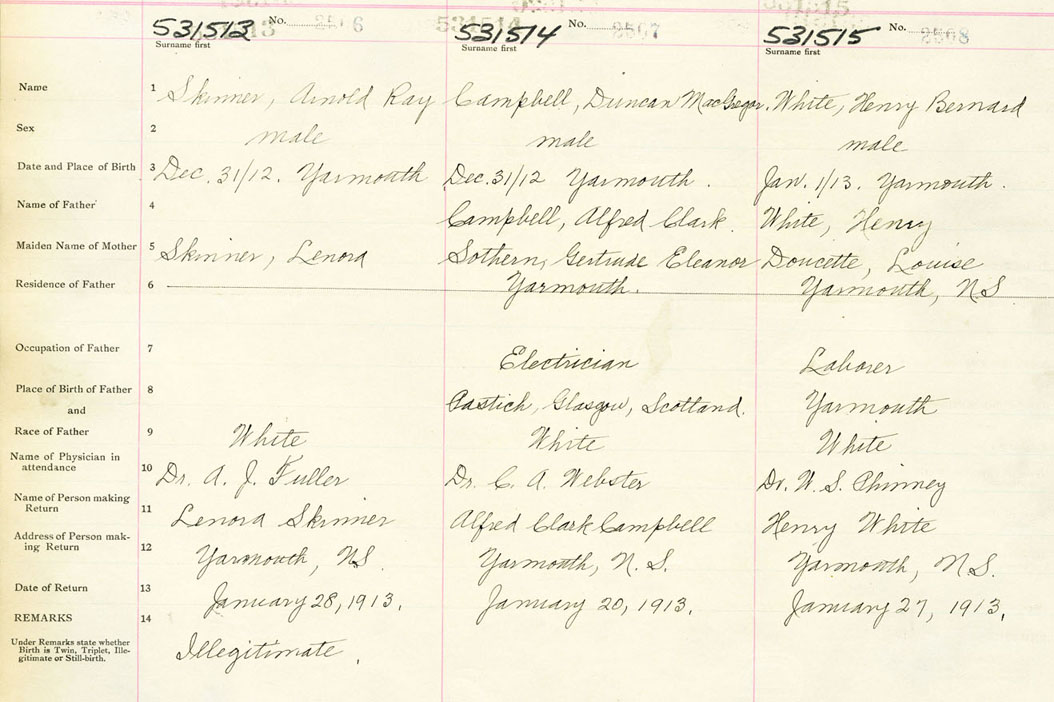 531513 No. 2506 531514 No. 2507 531515 No. 2508
Surname first Surname first Surname first
Name 1 Skinner, Arnold Ray Campbell, Duncan MacGregor. White, Henry Bernard
Sex 2 male male male
Date and Place of Birth 3 Dec. 31/12. Yarmouth Dec. 31/12 Yarmouth. Jan. 1/13. Yarmouth.
Name of Father 4 Campbell, Alfred Clark. White, Henry
Maiden Name of Mother 5 Skinner, Lenora Sothern, Gertrude Eleanor Doucette, Louise
Residence of Father 6 Yarmouth. Yarmouth, N.S
Occupation of Father 7 Electrician Laborer
Place of Birth of Father 8 Glasgow, Scotland. Yarmouth
and
Race of Father 9 White White White
Name of Physician in
attendance 10 Dr. A. J. Fuller Dr. C. A. Webster Dr. W. S. Phinney
Name of Person making
Return 11 Lenora Skinner Alfred Clark Campbell Henry White
Address of Person mak-
ing Return 12 Yarmouth, N.S. Yarmouth, N.S. Yarmouth, N.S.
Date of Return 13 January 28, 1913. January 20, 1913. January 27, 1913.
REMARKS 14
Under Remarks state whether
Birth is Twin, Triplet, Ille-
gitimate or Still-birth.
Illegitimate.